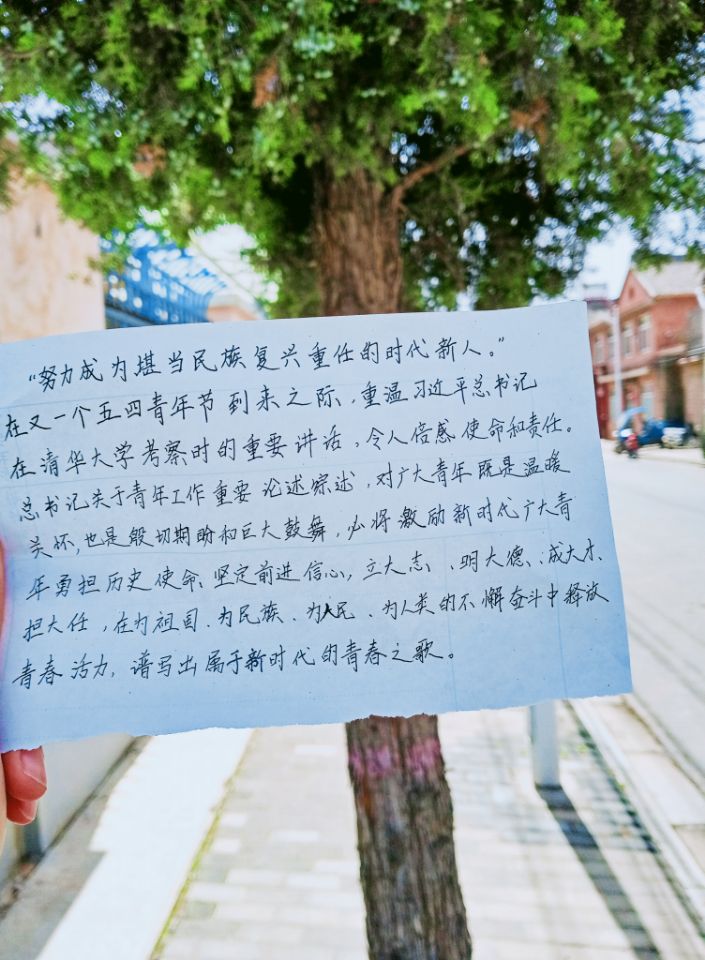 “努力成为堪当民族复兴重任的时代新人。”
在又一个五四青年节到来之际，重温习近平总书记
在清华大学考察时的重要讲话，令人倍感使命和责任。
总书记关于青年工作重要论述综述，对广大青年既是温暖
关怀，也是殷切期盼和巨大鼓舞，必将激励新时代广大青
年勇担历史使命、坚定前进信心，立大志、、明大德、、成大才、
担大任，在为祖国、为民族、为人民、为人类的不懈奋斗中释放
青春活力，谱写出属于新时代的青春之歌。